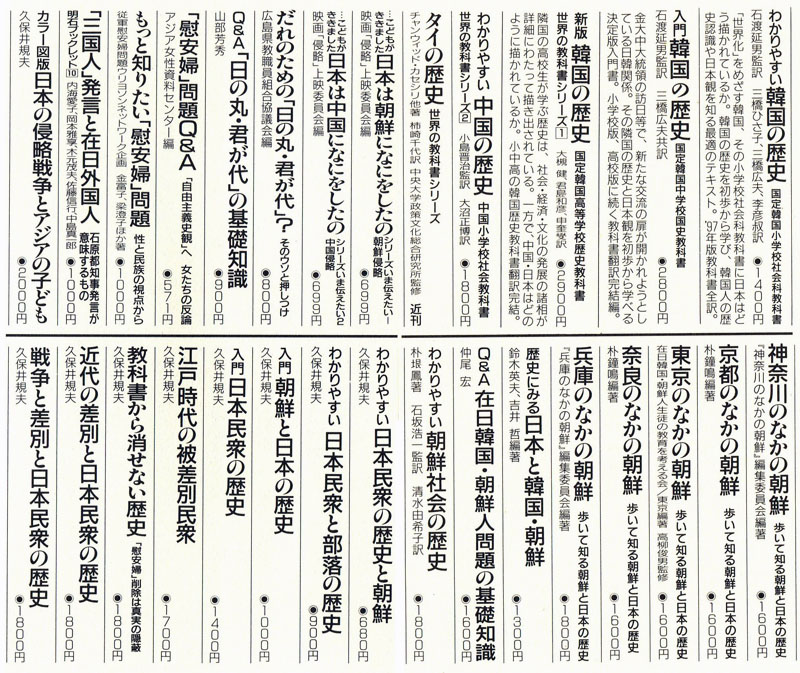 わかりやすい 韓国の歴史 国定韓国小学校社会科教科書
石渡延男監訳 三橋ひさ子、三橋広夫、李彦叔訳 ●1400円
「世界化」をめざす韓国、その小学校社会科教科書に日本はど
う描かれているか。韓国の歴史を初歩から学び、韓国人の歴
史認識や日本観を知る最適のテキスト。'97年版教科書全訳。
入門 韓国の歴史 国定韓国中学校国史教科書
石渡延男監訳 三橋広夫共訳 ●2800円
金大中大統領の訪日等で、新たな交流の扉が開かれようとし
ている日韓関係。その隣国の歴史と日本観を初歩から学べる
決定版入門書。小学校版、高校版に続く教科書翻訳完結編。
新版 韓国の歴史 国定韓国高等学校歴史教科書
世界の教科書シリーズ1 大槻健、君島和彦、申奎燮訳 ●2900円
隣国の高校生が学ぶ歴史は、社会・経済・文化の発展の諸相が
詳細にわたって描き出されている。一方で、中国・日本はどの
ように描かれているか。小中高の韓国歴史教科書翻訳完結。
わかりやすい 中国の歴史 中国小学校社会教科書
世界の教科書シリーズ2 小島晋治監訳 大沼正博訳 ●1800円
タイの歴史 世界の教科書シリーズ
チャンウィット・カセツィリ他著 柿崎千代訳 中央大学政策文化総合研究所監修 近刊
…こどもがききました 日本は朝鮮になにをしたの シリーズいま伝えたい1 朝鮮侵略
映画「侵略」上映委員会編 ●699円
…こどもがききました 日本は中国になにをしたの シリーズいま伝えたい2 中国侵略
映画「侵略」上映委員会編 ●699円
だれのための「日の丸・君が代」? そのウソと押しつけ
広島県教職員組合協議会編 ●800円
Q&A「日の丸・君が代」の基礎知識
山部芳秀 ●900円
「慰安婦」問題Q&A 「自由主義史観」へ 女たちの反論
アジア女性資料センター編 ●571円
もっと知りたい「慰安婦」問題 性と民族の視点から
従軍慰安婦問題ウリヨソンネットワーク企画 金富子、梁澄子ほか著 ●1000円
「三国人」発言と在日外国人 石原都知事発言が意味するもの
明石ブックレット10 内海愛子、岡本雅享、木元茂夫、佐藤信行、中島真一郎 ●1000円
カラー図版 日本の侵略戦争とアジアの子ども
久保井規夫 ●2000円
神奈川のなかの朝鮮 歩いて知る朝鮮と日本の歴史
『神奈川のなかの朝鮮』編集委員会編著 ●1600円
京都のなかの朝鮮 歩いて知る朝鮮と日本の歴史
朴鐘鳴編著 ●1600円
東京のなかの朝鮮 歩いて知る朝鮮と日本の歴史
在日韓国・朝鮮人生徒の教育を考える会/東京編著 高柳俊男監修 ●1600円
奈良のなかの朝鮮 歩いて知る朝鮮と日本の歴史
朴鐘鳴編著 ●1600円
兵庫のなかの朝鮮 歩いて知る朝鮮と日本の歴史
『兵庫のなかの朝鮮』編集委員会編著 ●1800円
歴史にみる日本と韓国・朝鮮
鈴木英夫、吉井 哲編著 ●1300円
Q&A 在日韓国・朝鮮人問題の基礎知識
仲尾 宏 ●1600円
わかりやすい 朝鮮社会の歴史
朴垠鳳著 石坂浩一監訳 清水由希子訳 ●1800円
わかりやすい 日本民衆の歴史と朝鮮
久保井規夫 ●680円
わかりやすい 日本民衆と部落の歴史
久保井規夫 ●900円
入門 朝鮮と日本の歴史
久保井規夫 ●1000円
入門 日本民衆の歴史
久保井規夫 ●1400円
江戸時代の被差別民衆
久保井規夫 ●1700円
教科書から消せない歴史 「慰安婦」削除は真実の隠蔽
久保井規夫 ●1800円
近代の差別と日本民衆の歴史
久保井規夫 ●1800円
戦争と差別と日本民衆の歴史
久保井規夫 ●1800円